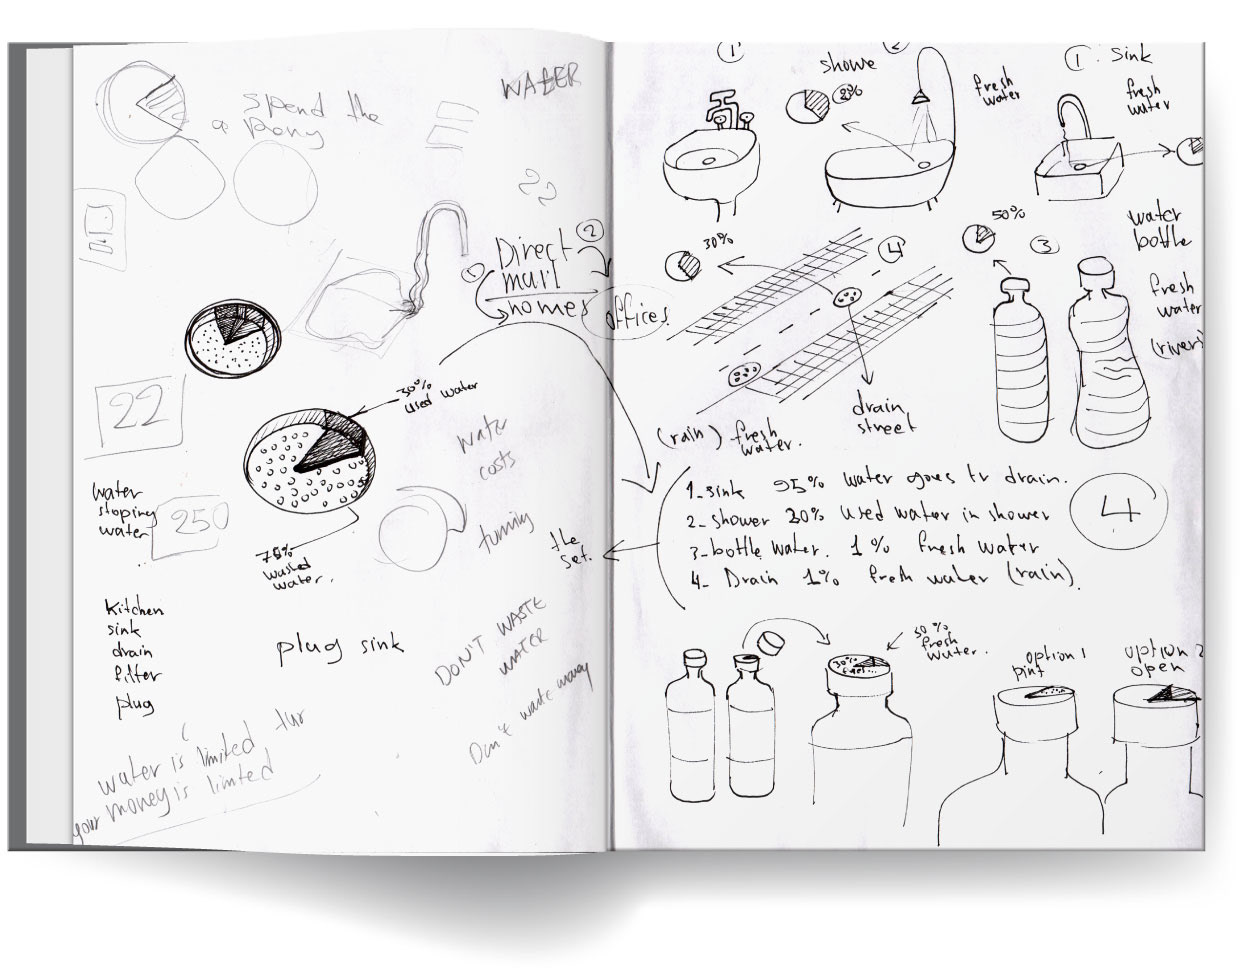 WATER
spend the
a Pony
22
Direct
mail
homes
1
2
offices.
30%
used water
22
water
costs
water
stoping
water
250
70%
wasted
water.
turning
the
set.
Kitchen
sink
drain
filter
plug
plug sink
DON'T WASTE
WATER
Don't waste money
water is limited
your money is limited
1
showe
2
20%
fresh
water
1. sink
fresh
water
30%
4
drain
street
(rain) fresh
water.
50%
3
water
bottle
fresh
water
(river)
1_sink 95% water goes to drain.
2_shower 30% used water in shower
3_bottle water. 1% fresh water
4_ Drain 1% fresh water (rain).
4
30%
30%
fresh
water.
option 1
pint
option 2
open